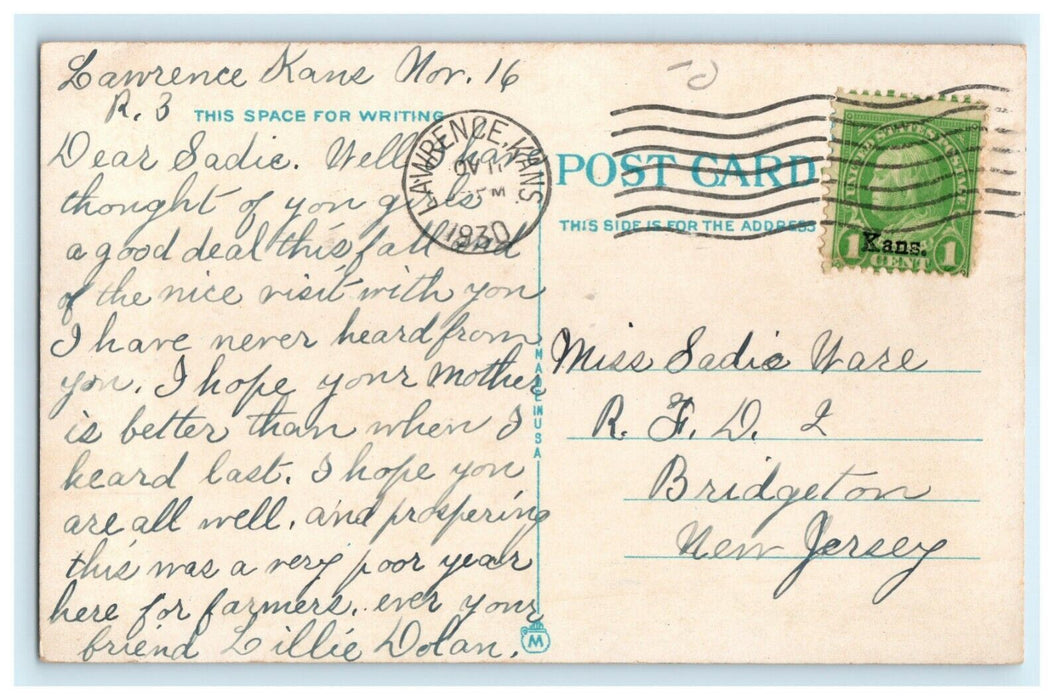 Lawrence Kans Nov. 16
R. 3
THIS SPACE FOR WRITING
Dear Sadie. Well I have
thought of you girls
a good deal this fall and
of the nice visit with you
I have never heard from
you. I hope your mother
is better than when I
heard last. I hope you
are all well, and prospering
this was a very poor year
here for farmers. ever your
friend Lillie Dolan.
LAWRENCE, KANS.
NOV 17
PM
1930
POST CARD
THIS SIDE IS FOR THE ADDRESS
UNITED STATES POSTAGE
Kans.
1 CENT 1
MADE IN USA
M
Miss Sadie Ware
R. F. D. 2
Bridgeton
New Jersey